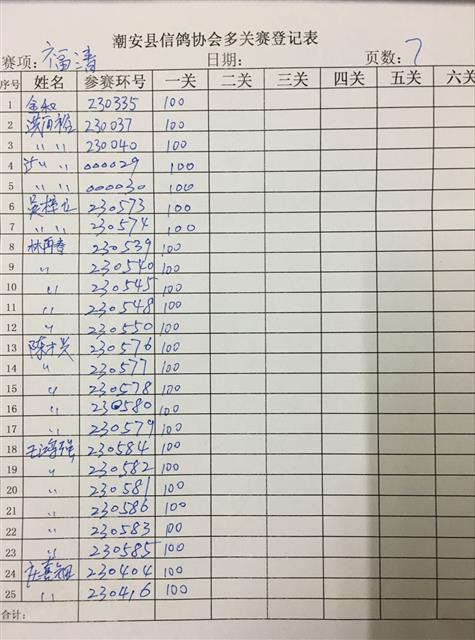 潮安县信鸽协会多关赛登记表
赛项: 福清 日期: 页数: 7
序号 姓名 参赛环号 一关 二关 三关 四关 五关 六关
1 230335 100
2 230037 100
3 〃 〃 230040 100
4 〃 〃 000029 100
5 〃 〃 000030 100
6 230573 100
7 〃 〃 230574 100
8 林再香 230539 100
9 〃 230540 100
10 〃 230545 100
11 〃 230548 100
12 〃 230550 100
13 陈才兴 230576 100
14 〃 230577 100
15 〃 230578 100
16 〃 230580 100
17 〃 230579 100
18 王鸿强 230584 100
19 〃 230582 100
20 〃 230581 100
21 〃 230586 100
22 〃 230583 100
23 〃 230585 100
24 230404 100
25 〃 230416 100
合计: